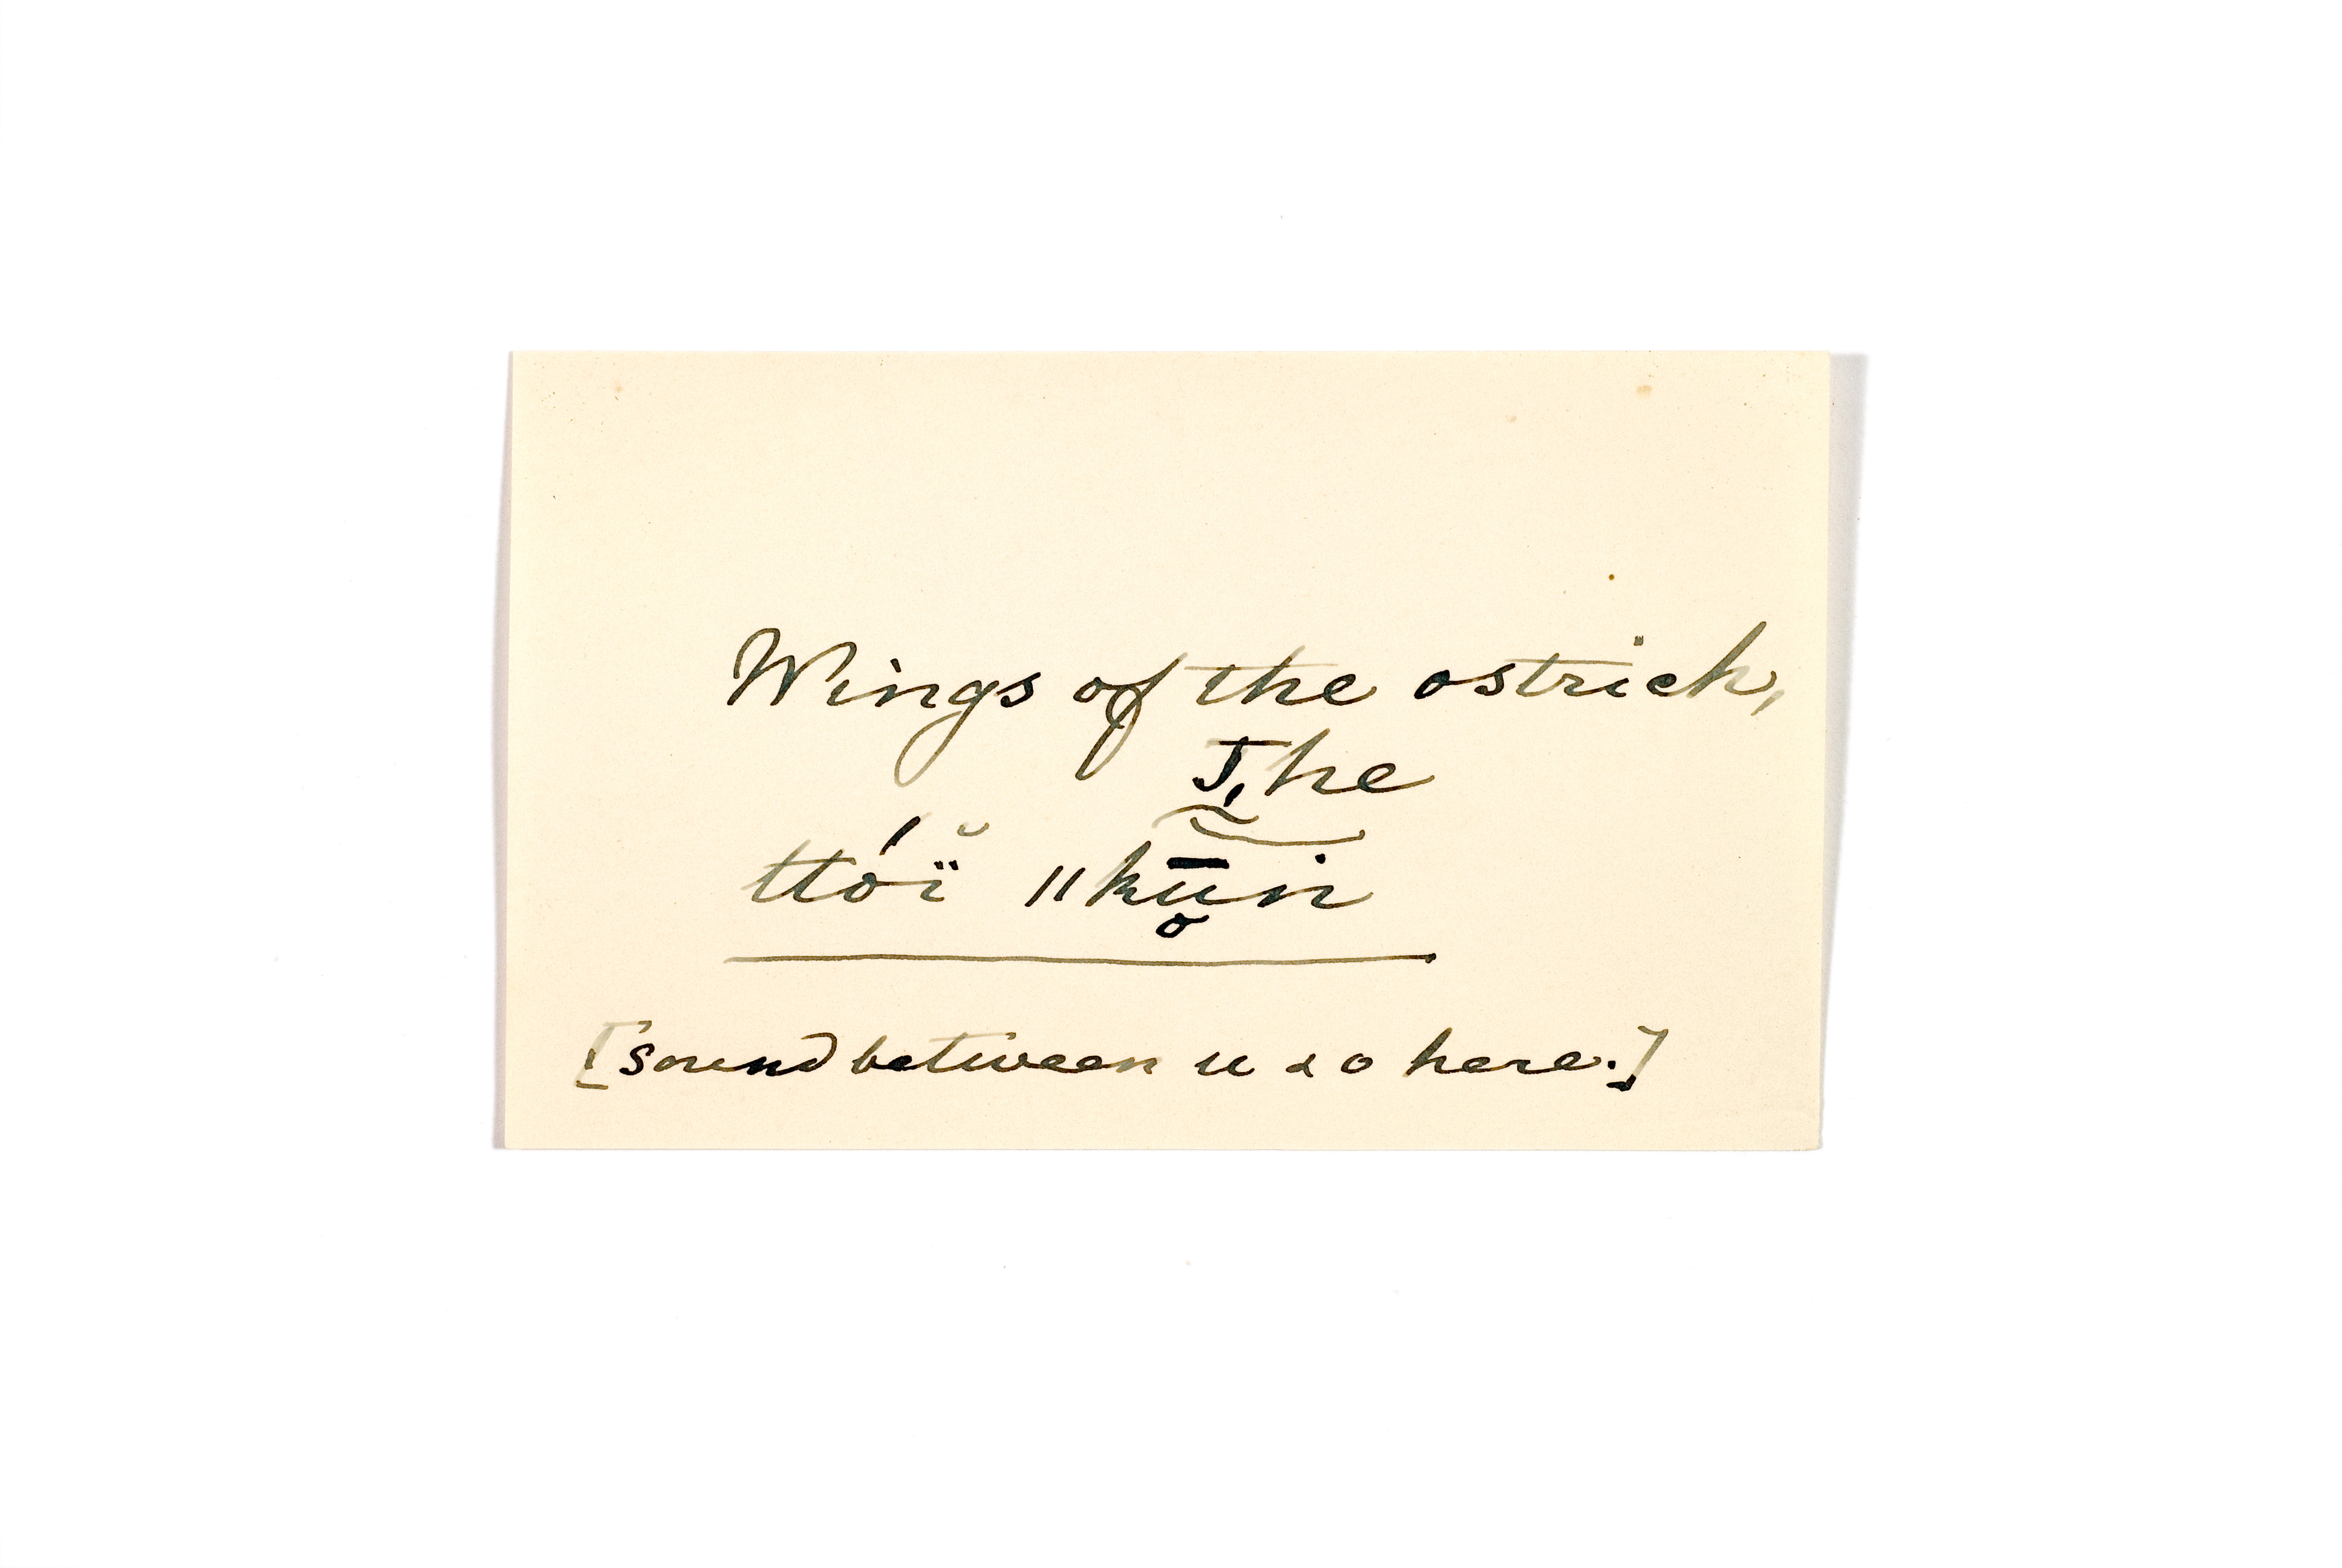 Wings of the ostrich,
The
ttóï̆ ǁkū̃n
[sound between u & o here.]